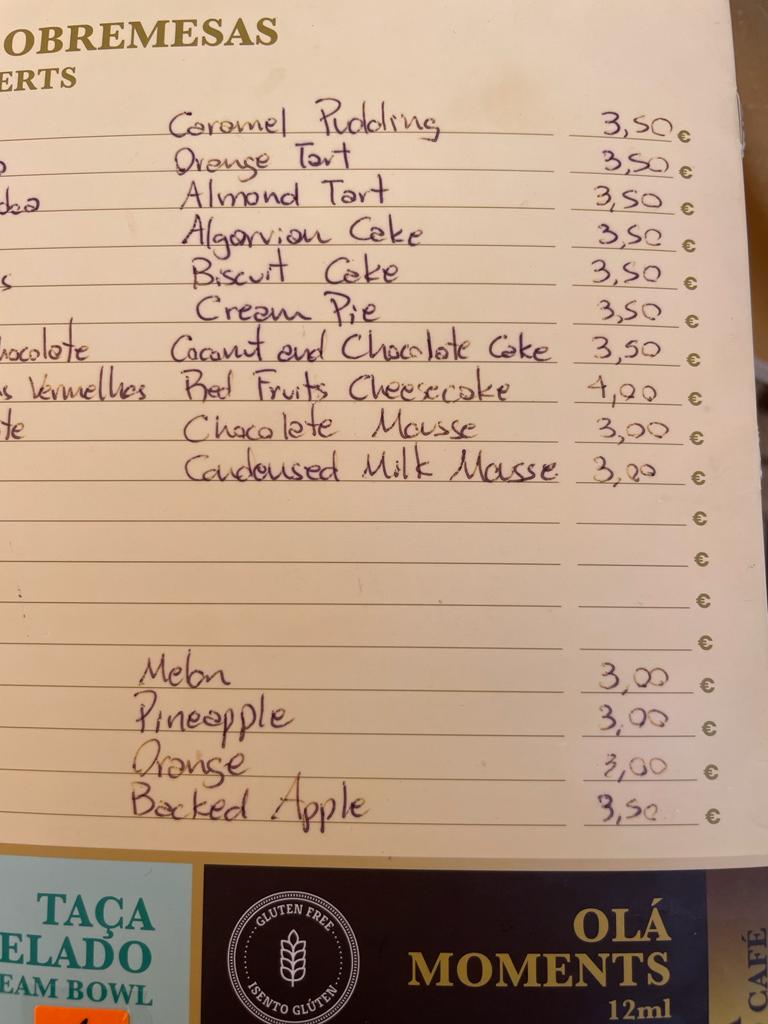 OBREMESAS
ERTS
Caramel Pudding 3,50 €
Orange Tart 3,50 €
Almond Tart 3,50 €
Algarvian Cake 3,50 €
s Biscuit Cake 3,50 €
Cream Pie 3,50 €
hocolate Coconut and Chocolate Cake 3,50 €
s Vermelhos Red Fruits Cheesecake 4,00 €
te Chocolate Mousse 3,00 €
Condensed Milk Mousse 3,00 €
€
€
€
€
Melon 3,00 €
Pineapple 3,00 €
Orange 3,00 €
Backed Apple 3,50 €
TAÇA
ELADO
EAM BOWL
GLUTEN FREE
ISENTO GLÚTEN
OLÁ
MOMENTS
12ml
CAFÉ